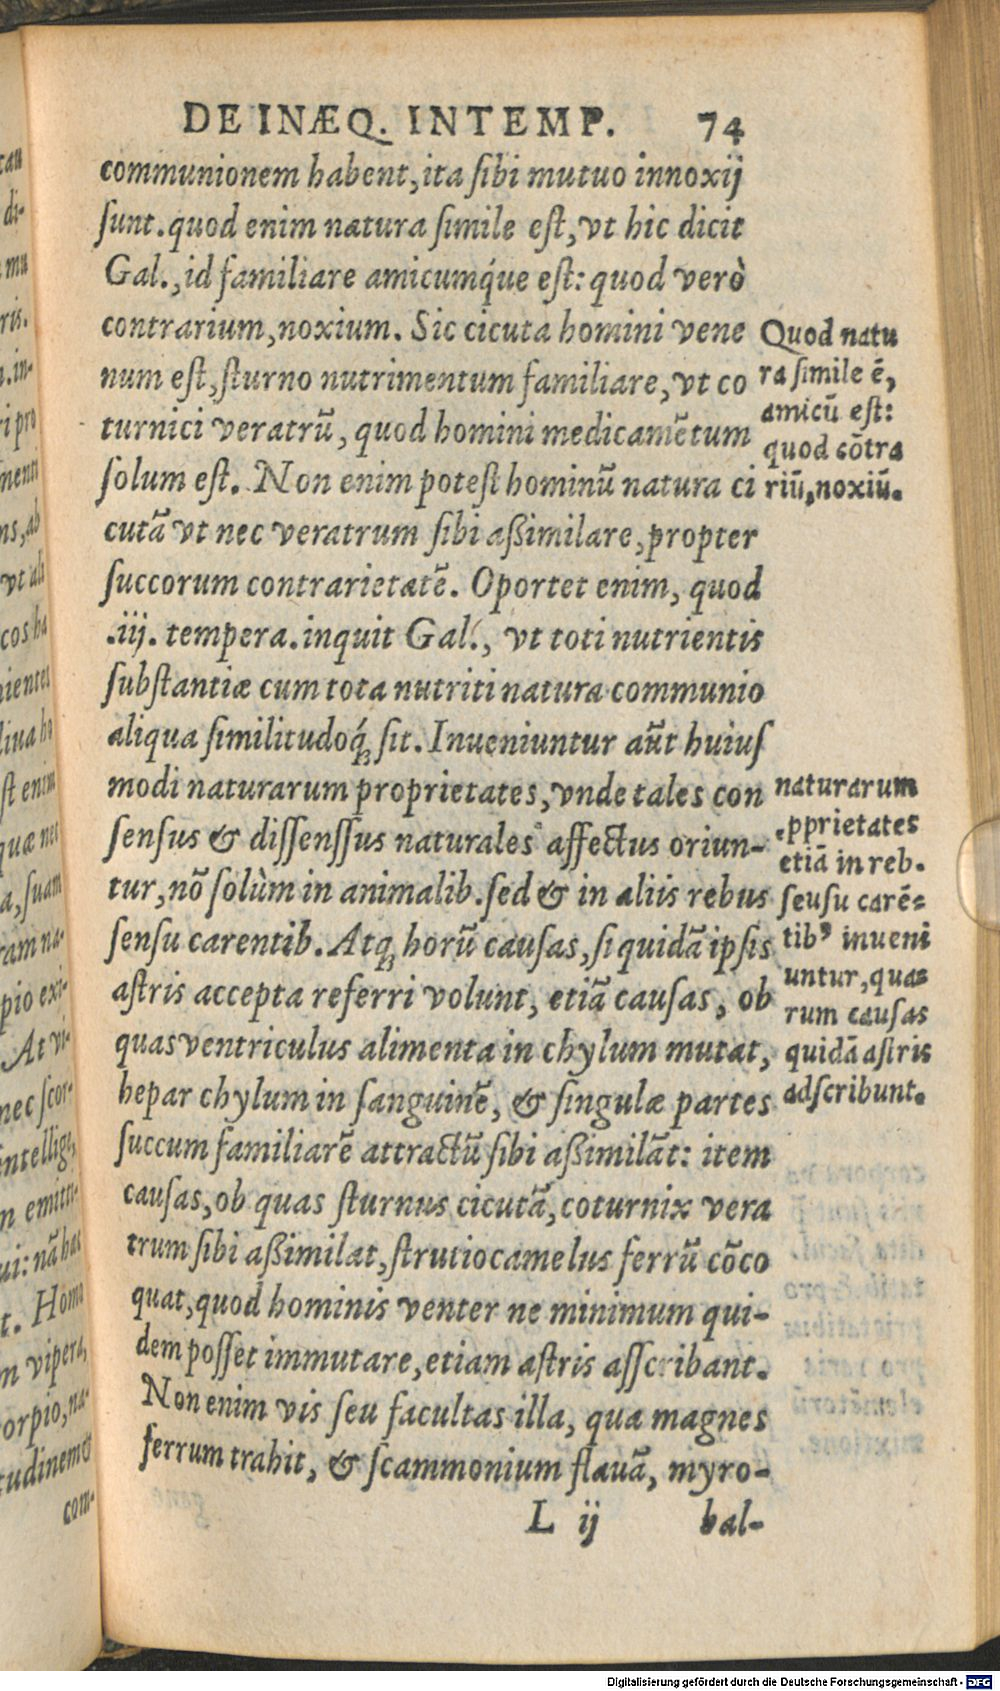 DE INÆQ. INTEMP. 74
communionem habent, ita sibi mutuo innoxij
sunt. quod enim natura simile est, vt hic dicit
Gal., id familiare amicumq́ue est: quod verò
contrarium, noxium. Sic cicuta homini vene
num est, sturno nutrimentum familiare, vt co
turnici veratrũ, quod homini medicamẽtum
solum est. Non enim potest hominũ natura ci
cutã vt nec veratrum sibi aßimilare, propter
succorum contrarietatẽ. Oportet enim, quod
.iij. tempera. inquit Gal., vt toti nutrientis
substantiæ cum tota nutriti natura communio
aliqua similitudoq́; sit. Inueniuntur aũt huius
modi naturarum proprietates, vnde tales con
sensus & dissensſus naturales affectus oriun-
tur, nõ solùm in animalib. sed & in aliis rebus
sensu carentib. Atq; horũ causas, si quidã ipsis
astris accepta referri volunt, etiã causas, ob
quas ventriculus alimenta in chylum mutat,
hepar chylum in sanguinẽ, & singulæ partes
succum familiarẽ attractũ sibi aßimilãt: item
causas, ob quas sturnus cicutã, coturnix vera
trum sibi aßimilat, strutiocamelus ferrũ cõco
quat, quod hominis venter ne minimum qui-
dem posset immutare, etiam astris asscribant.
Non enim vis seu facultas illa, qua magnes
ferrum trahit, & scammonium flauã, myro-
L ij bal-
Quod natu
ra simile ẽ,
amicũ est:
quod cõtra
riũ, noxiũ.
naturarum
pprietates
etiã in reb.
seusu carẽ=
tibꝰ inueni
untur, qua=
rum causas
quidã astris
adscribunt.
tau
di-
mu
ris.
in-
ri pro
menti
ns, ab
vt ali
cos ha
nientes
liua ho
st enim
quæ nec
a, suam
ram na-
pio exi-
At vi-
nec scor-
intellige,
n emitti-
ui: nã has
t. Homo
m vipera,
orpio, na-
tudinem &
com-
Digitalisierung gefördert durch die Deutsche Forschungsgemeinschaft - DFG